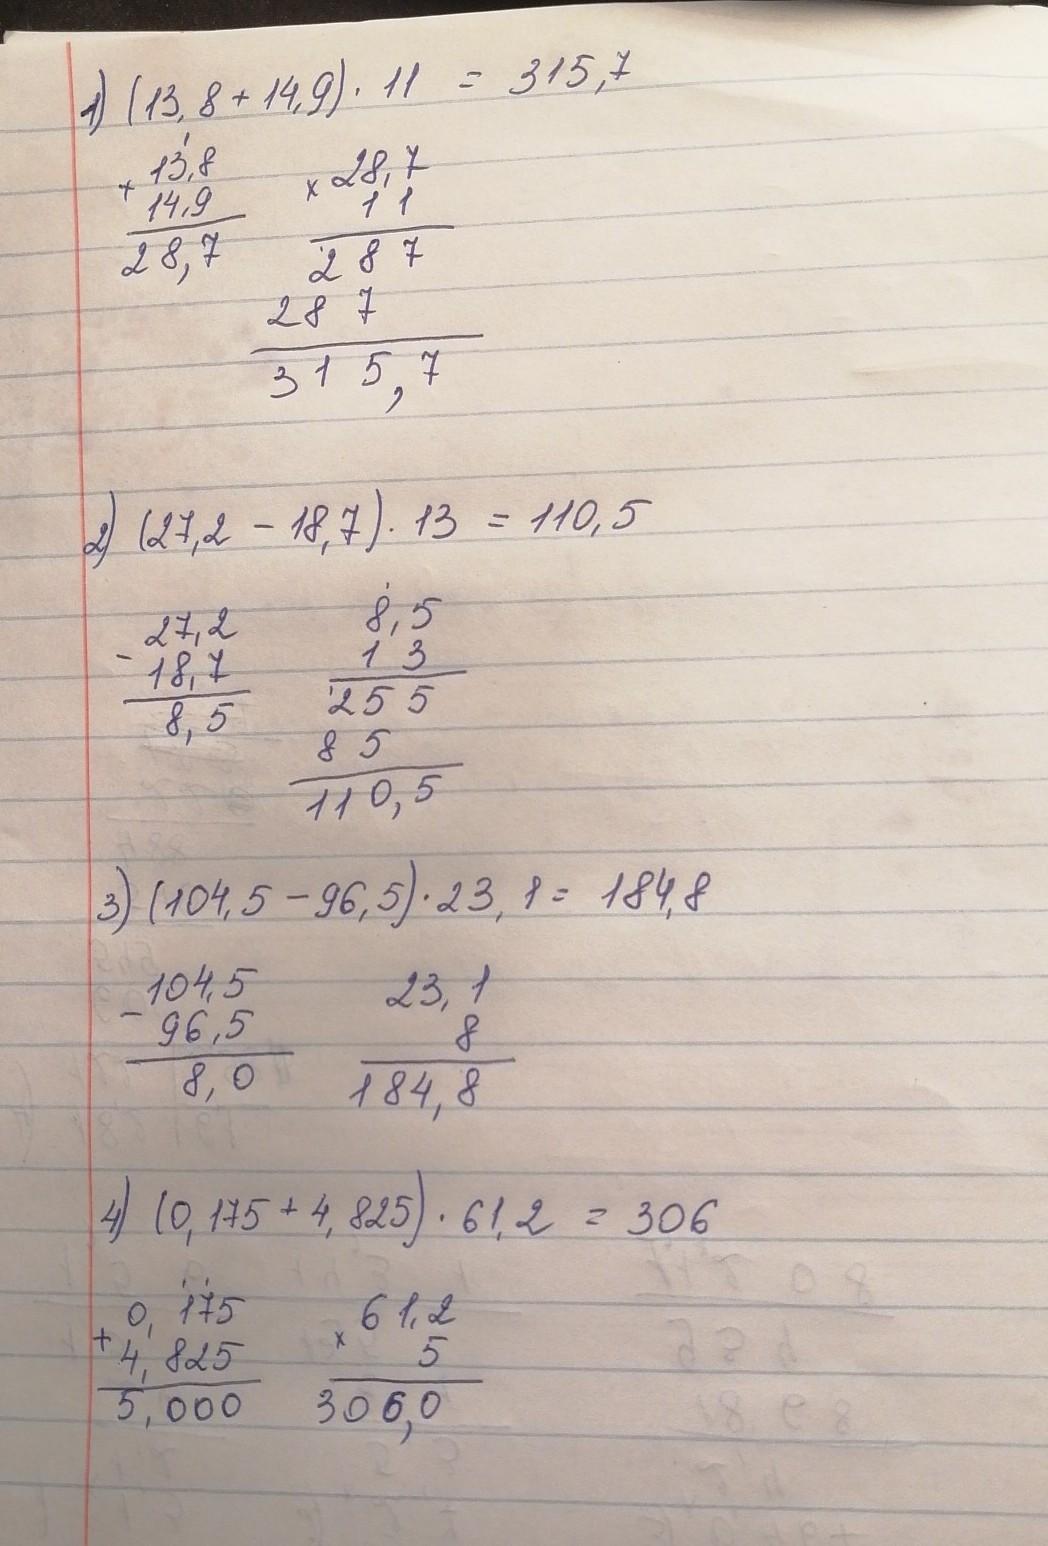 1) (13,8 + 14,9) · 11 = 315,7
+ 13,8
14,9
28,7
× 28,7
11
287
287
315,7
2) (27,2 - 18,7) · 13 = 110,5
- 27,2
18,7
8,5
8,5
13
255
85
110,5
3) (104,5 - 96,5) · 23,1 = 184,8
- 104,5
96,5
8,0
23,1
8
184,8
4) (0,175 + 4,825) · 61,2 = 306
+ 0,175
4,825
5,000
× 61,2
5
306,0